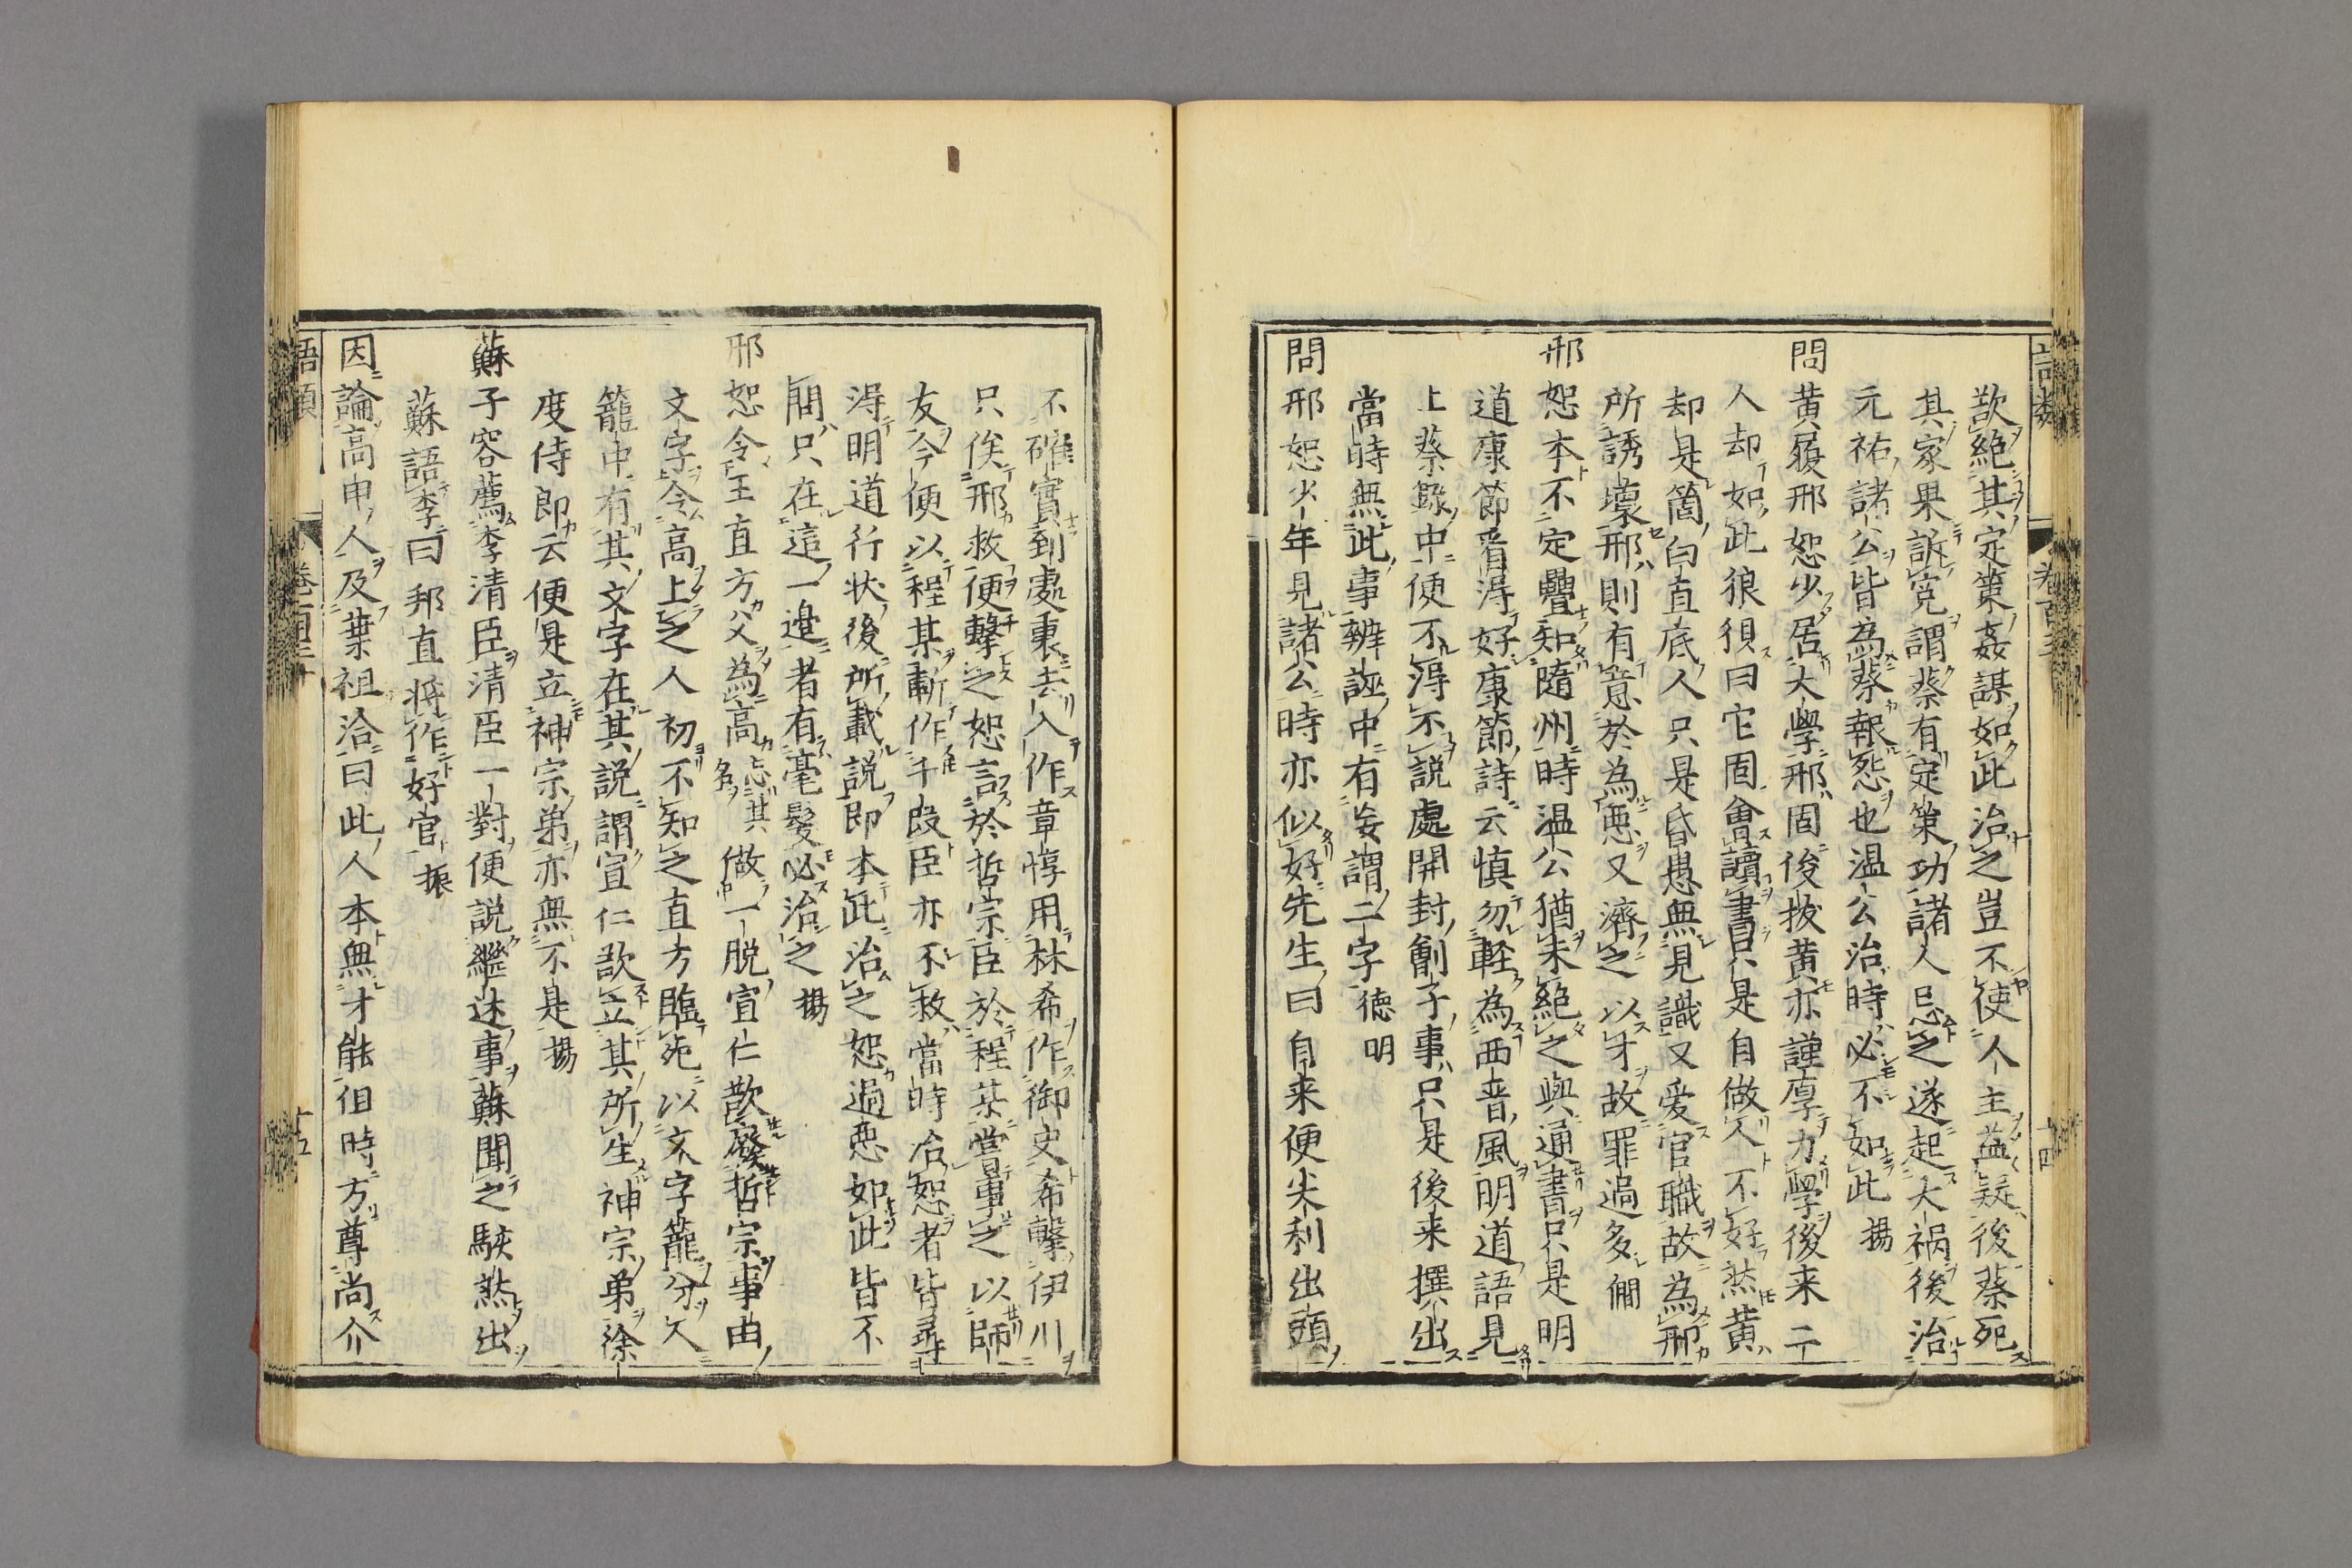 歃絶其定策姦謀如此治之豈不使人主益疑後蔡死
其家果訴寃謂蔡有定策功諸人忌之遂起大禍後治
元祐諸公皆為蔡報怨也温公治時必不如此 揚
問黄履邢恕少居大學邢固俊拔黄亦謹厚力學後来二
人却如此狼狽曰它固會讀書只是自做人不好然黄
却是箇白直底人只是昏愚無見識又爱官職故為邢
所誘壞邢則有意於為惡又濟之以才故罪過多 僩
邢恕本不定疊知隨州時温公猶未絶之與通書只是明
道康節看得好康節詩云慎勿軽為西晋風明道語見
上蔡錄中便不得不説處開封劊子事只是後来撰出
當時無此事辨誣中有妄謂二字 徳明
問邢恕少年見諸公時亦似好先生曰自来便尖利出頭
不確實到處裏去入作章惇用林希作御史希擊伊川
只俟邢救便擊之恕言於哲宗臣於程某嘗事之以師
友今便以程某斬作千段臣亦不救當時治恕者皆尋
得明道行状後所載説即本此治之恕過惡如此皆不
問只在這一邉者有毫髮必治之 揚
邢恕令王直方父為高忘其名做一脱宣仁欲廢哲宗事由
文字令高上之人初不知之直方臨死以文字籠分人
籠中有其文字在其説謂宣仁欲立其所生神宗弟徐
度侍郎云便是立神宗弟亦無不是 揚
蘇子容薦李清臣清臣一對便説繼述事蘇聞之駭然出
蘇語李曰邦直将作好官 振
因論高申人及葉祖洽曰此人本無才能但時方尊尚介
語類 卷百三十 十五